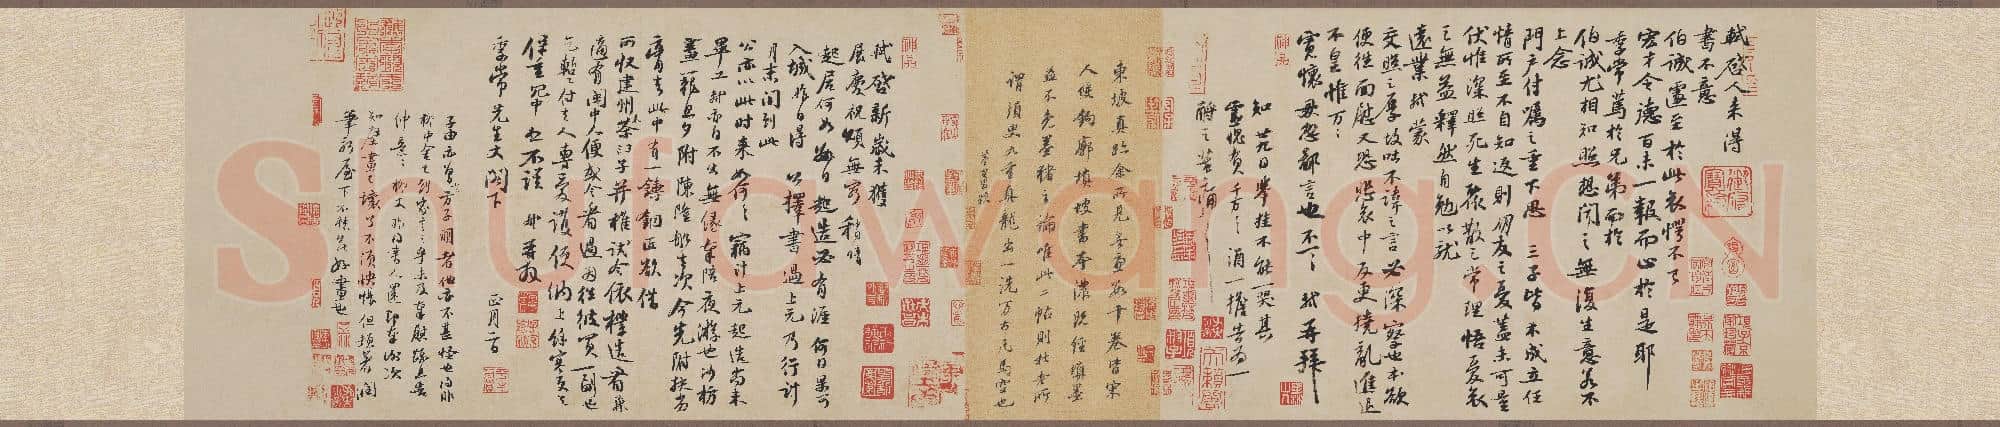 軾啓人來得
書不意
伯誠遽至於此哀愕不已
宏才令德百未一報而止於是耶
季常篤於兄弟而於
伯誠尤相知照想聞之無復生意若不
上念
門戶付囑之重下思三子皆未成立任
情所至不自知返則朋友之憂蓋未可量
伏惟深照死生聚散之常理悟憂哀
之無益釋然自勉以就
遠業軾蒙
交照之厚故吐不諱之言必深察也本欲
便往面慰又恐悲哀中反更撓亂進退
不皇惟萬萬
寬懷毋忽鄙言也不一一軾再拜
知廿九日舉掛不能一哭其
靈愧負千萬千萬酒一擔告為一
酹之苦痛苦痛
東坡真跡余所見無慮數十卷皆宋
人雙鉤廓填坡書本濃既經填墨
益不免墨豬之論唯此二帖則杜老所
謂須臾九重真龍出一洗萬古凡馬空也
董其昌題
軾啓新歲未獲
展慶祝頌無窮稍晴
起居何如數日起造必有涯何日果可
入城昨日得公擇書過上元乃行計
月末間到此
公亦以此時來如何如何竊計上元起造尚未
畢工軾亦自不出無緣奉陪夜游也沙枋
畫籠旦夕附陳隆船去次今先附扶劣
膏去此中有一鑄銅匠欲借
所收建州木茶臼子并椎試令依樣造看兼
適有閩中人便或令看過因往彼買一副也
乞暫付去人專愛護便納上餘寒更乞
保重冗中恕不謹軾再拜
季常先生丈閣下
正月二日
子由亦曾言方子明者他亦不甚怪也得非
柳中舍已到家言之乎未及奉慰疏且告
伸意伸意柳丈昨得書人還即奉謝次
知壁畫已壞了不須怏悵但頓著潤
筆新屋下不愁無好畫也
Shufawang.CN